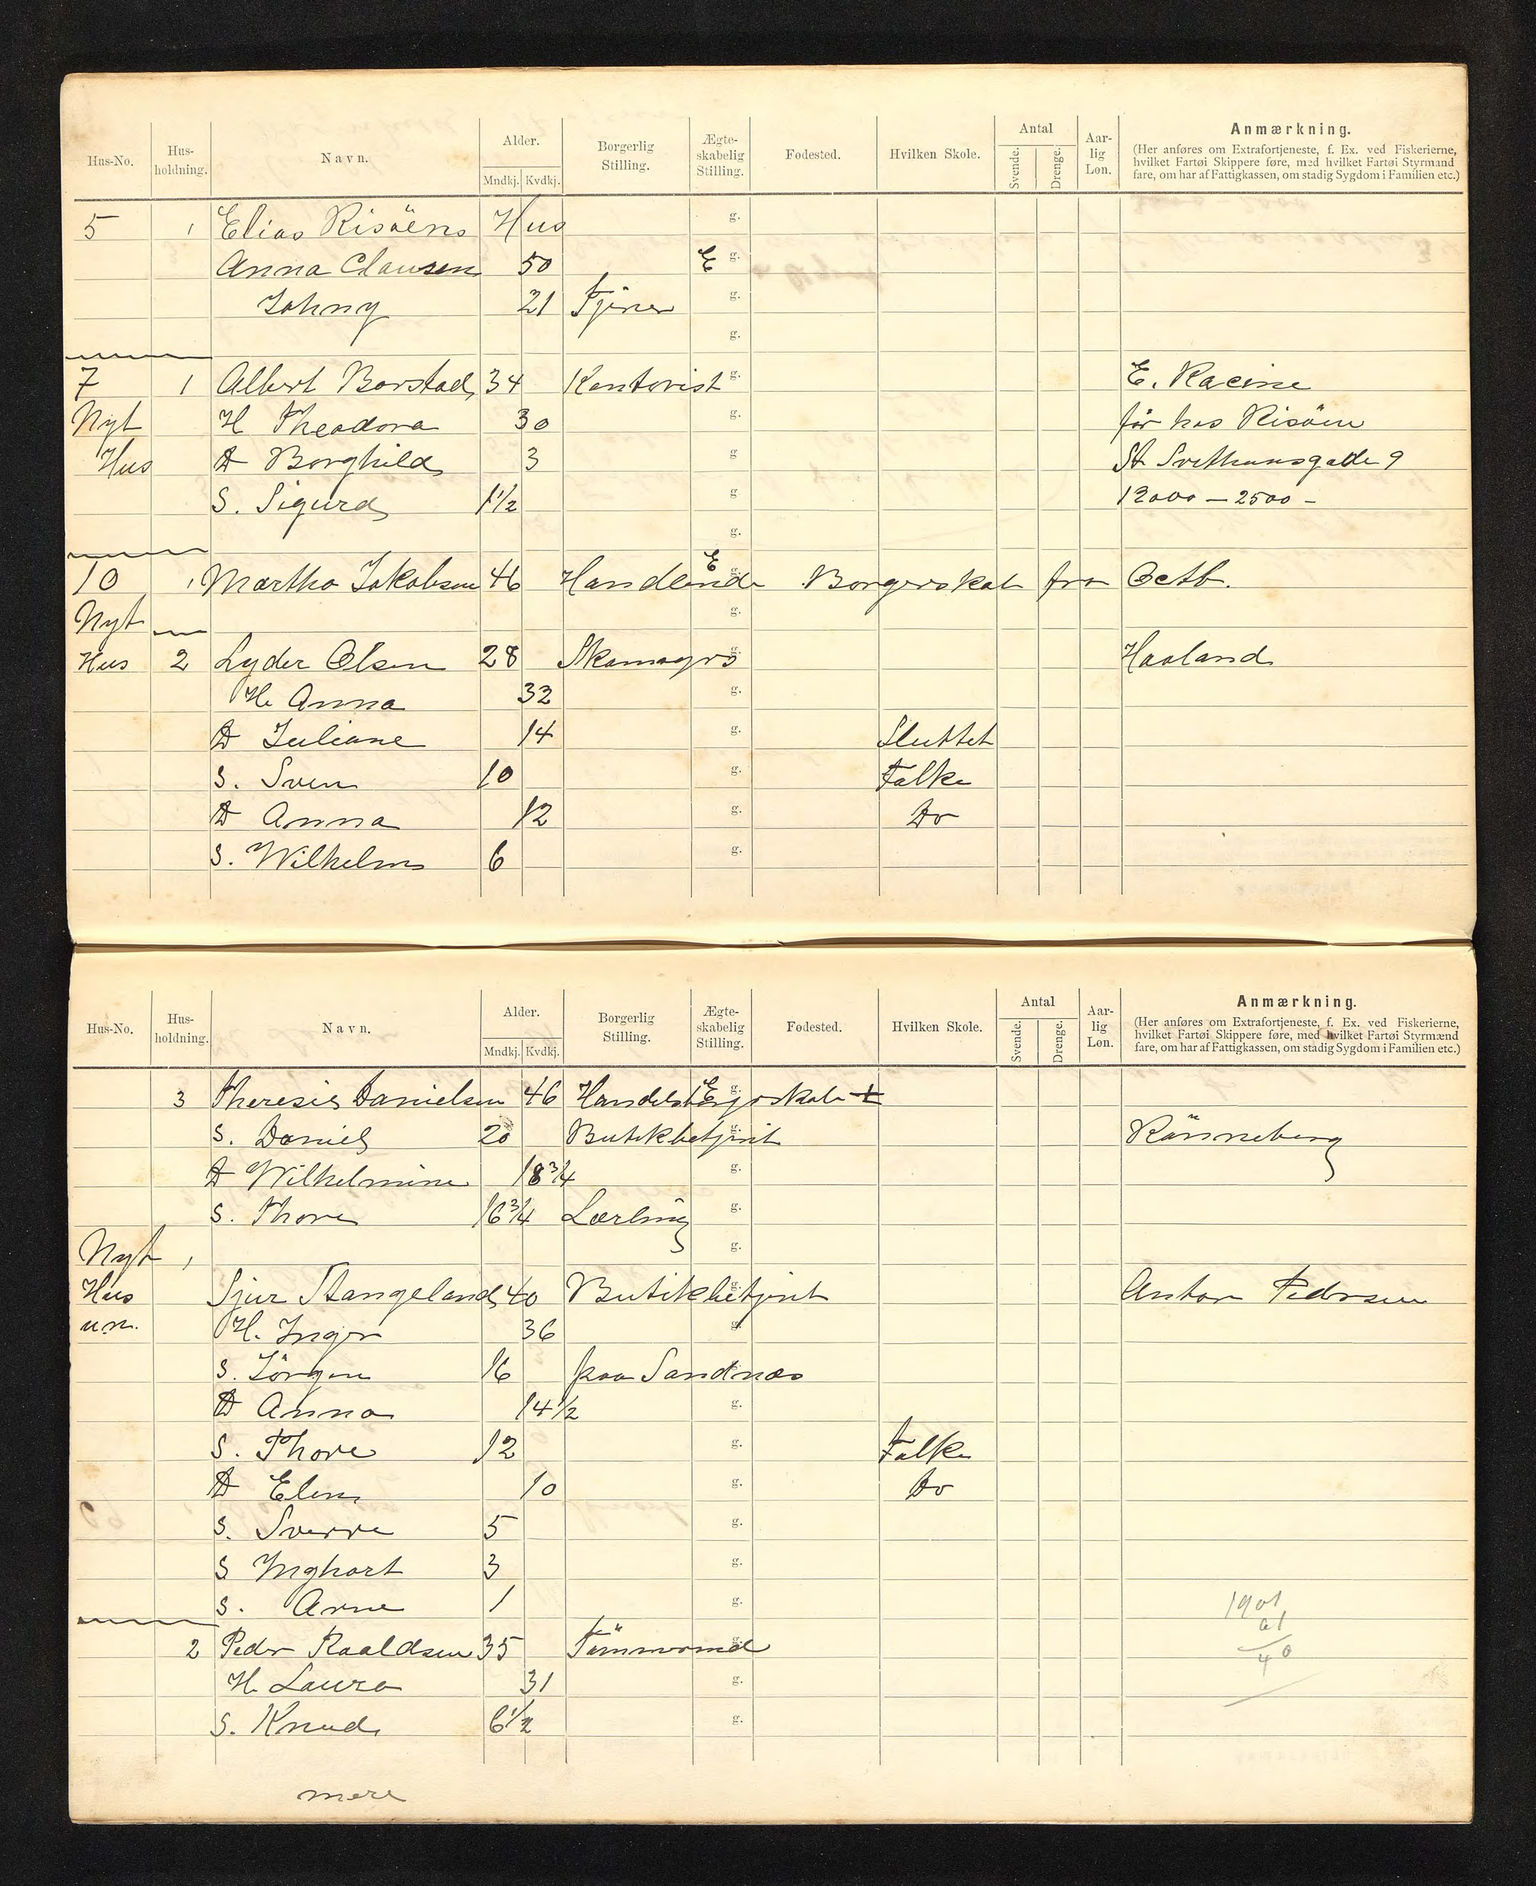 Hus-No. Hus-holdning. Navn. Alder. Mndkj. Kvdkj. Borgerlig Stilling. Ægte-skabelig Stilling. Fodested. Hvilken Skole. Antal Svende. Drenge. Aar-lig Løn. Anmærkning.
(Her anføres om Extrafortjeneste, f. Ex. ved Fiskerierne,
hvilket Fartøi Skippere føre, med hvilket Fartøi Styrmænd
fare, om har af Fattigkassen, om stadig Sygdom i Familien etc.)
5 1 Elias Risöens Hus g.
Anna Clausen 50 E g.
Johny 21 Tjener g.
g.
7 1 Albert Borstad 34 Kontorist g. E. Racine
Nyt H Theodora 30 g. för hos Risöen
Hus D Borghild 3 g St Svithunsgade 9
S. Sigurd 1 1/2 g. 12000 — 2500 —
g.
10 1 Martha Jakobsen 46 Handlende E g. Borgerskab fra Octb.
Nyt g.
Hus 2 Lyder Olsen 28 Skomagr g. Haaland
H. Anna 32 g.
D Juliane 14 g. Sluttet
S. Sven 10 g. Folke
D Anna 12 g. Do
S. Wilhelm 6 g.
Hus-No. Hus-holdning. Navn. Alder. Mndkj. Kvdkj. Borgerlig Stilling. Ægte-skabelig Stilling. Fodested. Hvilken Skole. Antal Svende. Drenge. Aar-lig Løn. Anmærkning.
(Her anføres om Extrafortjeneste, f. Ex. ved Fiskerierne,
hvilket Fartøi Skippere føre, med hvilket Fartøi Styrmænd
fare, om har af Fattigkassen, om stadig Sygdom i Familien etc.)
3 Theresie Danielsen 46 E g.
S. Daniel 20 Butikbetjent g. Rönneberg
D Wilhelmine 18 3/4 g.
S. Thore 16 3/4 Lærling g.
Nyt 1 g.
Hus Sjur Stangeland 40 Butikbetjent g. Anton Pedersen
un. H. Inger 36 g.
S. Jörgen 16 paa Sandnæs
D Anna 14 1/2 g.
S. Thore 12 g. Folke
D Elen 10 g. Do
S. Sverre 5 g.
S Inghart 3 g.
S. Arne 1 g. 1901
61
2 Peder Roaldsen 35 Tömmermd g. 40
H. Laura 31 g.
S. Knud 6 1/2 g.
mere